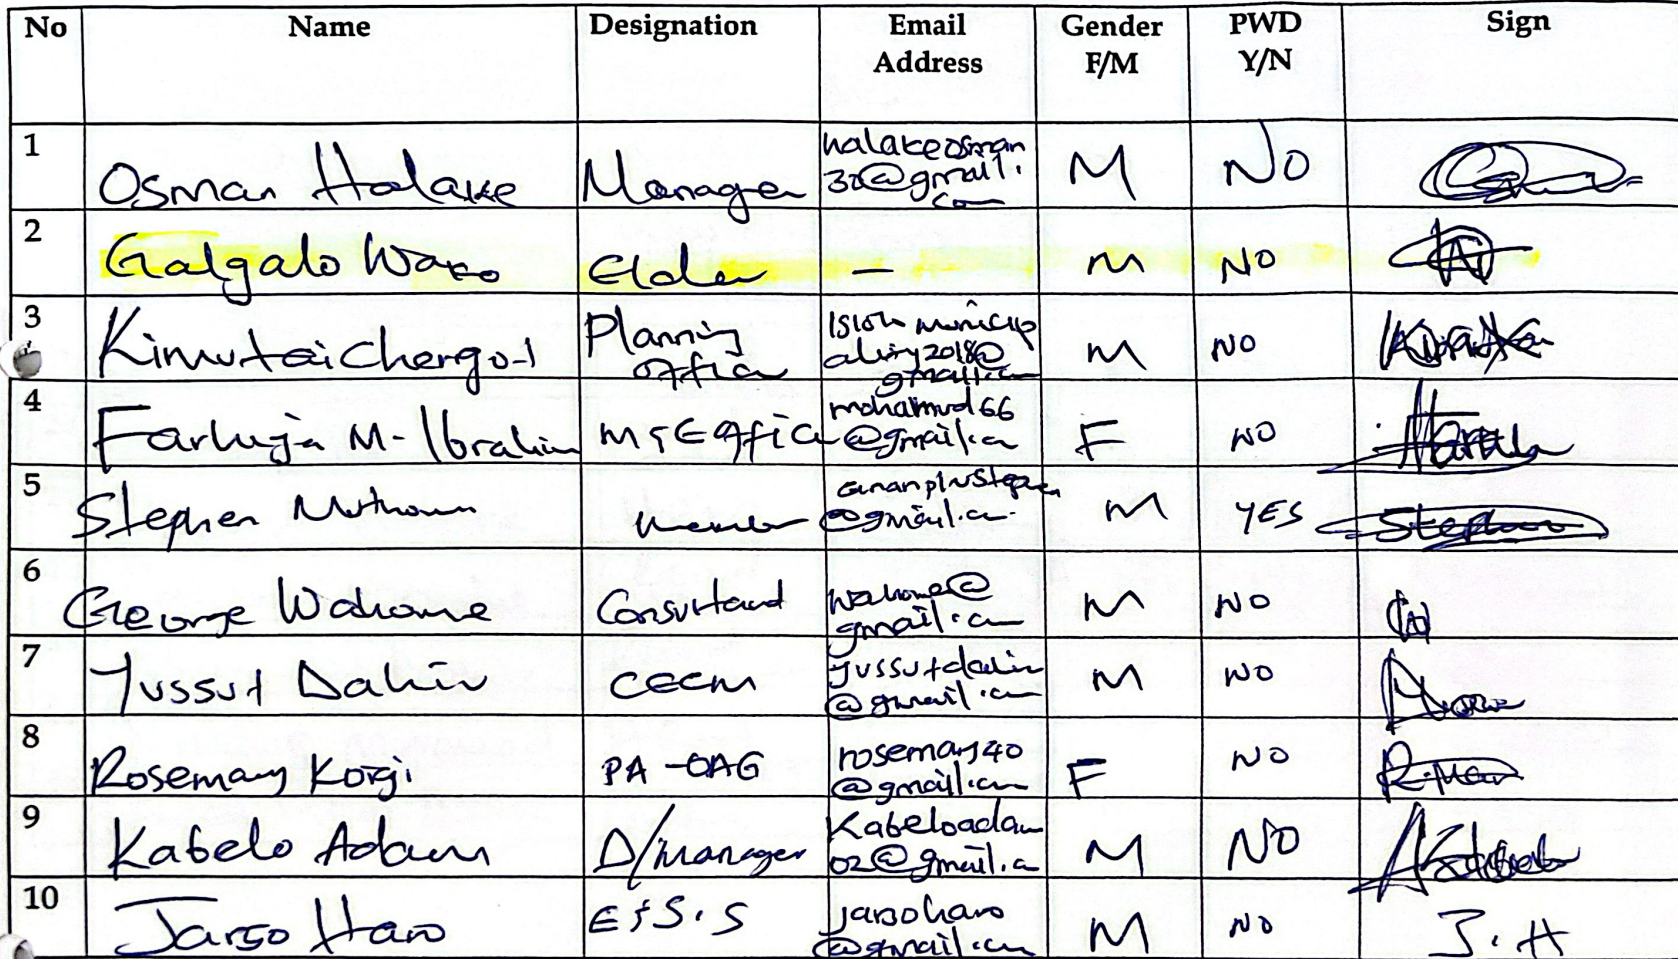 No Name Designation Email Address Gender F/M PWD Y/N Sign
1 Osman Halake Manager halakeosman30@gmail.com M NO
2 Galgalo Wako Elder – M NO
3 Kimutai Planning Officer @gmail.com M NO
4 M. Ibrahim M & E Officer @gmail.com F NO
5 Stephen Member @gmail.com M YES Stephen
6 George Wahome Consultant wahome@gmail.com M NO
7 Yussuf Dahir CECM yussufdahir@gmail.com M NO
8 Rosemary Korgi PA - OAG rosemary40@gmail.com F NO
9 Kabelo Adam D/manager Kabeloadam02@gmail.com M NO
10 Jarso Haro E&S.S jarsoharo@gmail.com M NO J.H